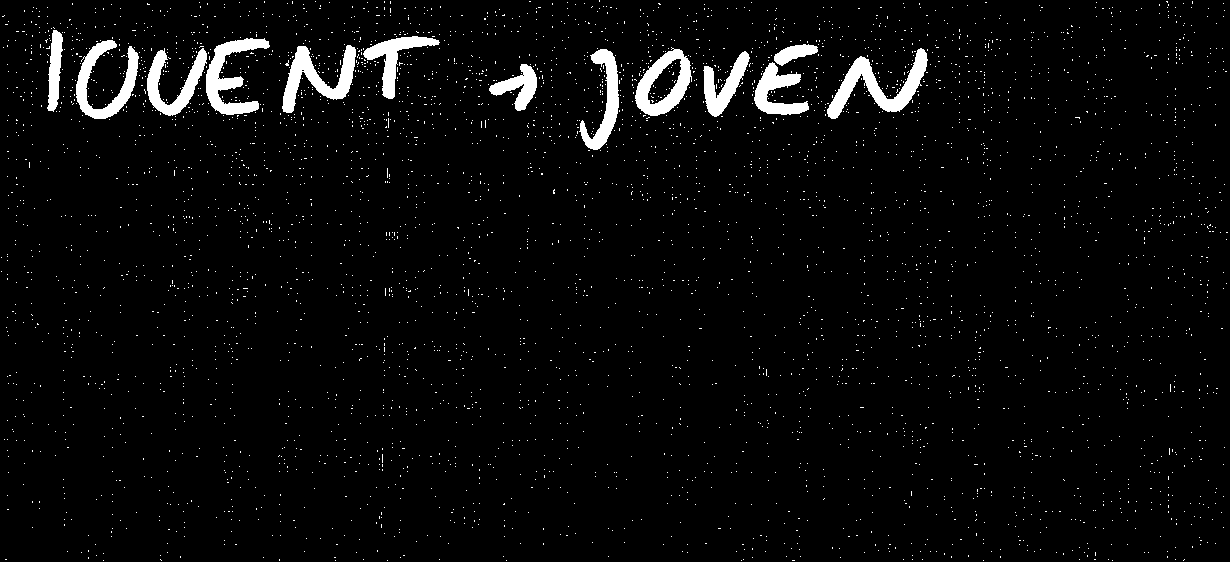 IOUENT → JOVEN